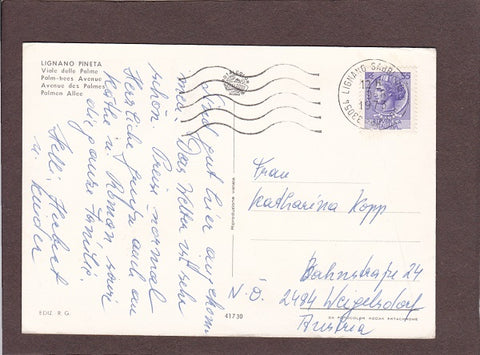 LIGNANO PINETA
Viale delle Palme
Palm-trees Avenue
Avenue des Palmes
Palmen Allee
Sind gut hier angekom
men. Das Wetter ist sehr
schön. Preise normal
Herzliche Grüße auch an
Käthe u. Roman sowie
die ganze Familie.
Helli, Herbert
u. Kinder
EDIZ. R. G.
Riproduzione vietata
41730
33054 LIGNANO SABB
12
197
Frau
Katharina Kopp
Bahnstraße 24
N.Ö. 2484 Weigelsdorf
Austria